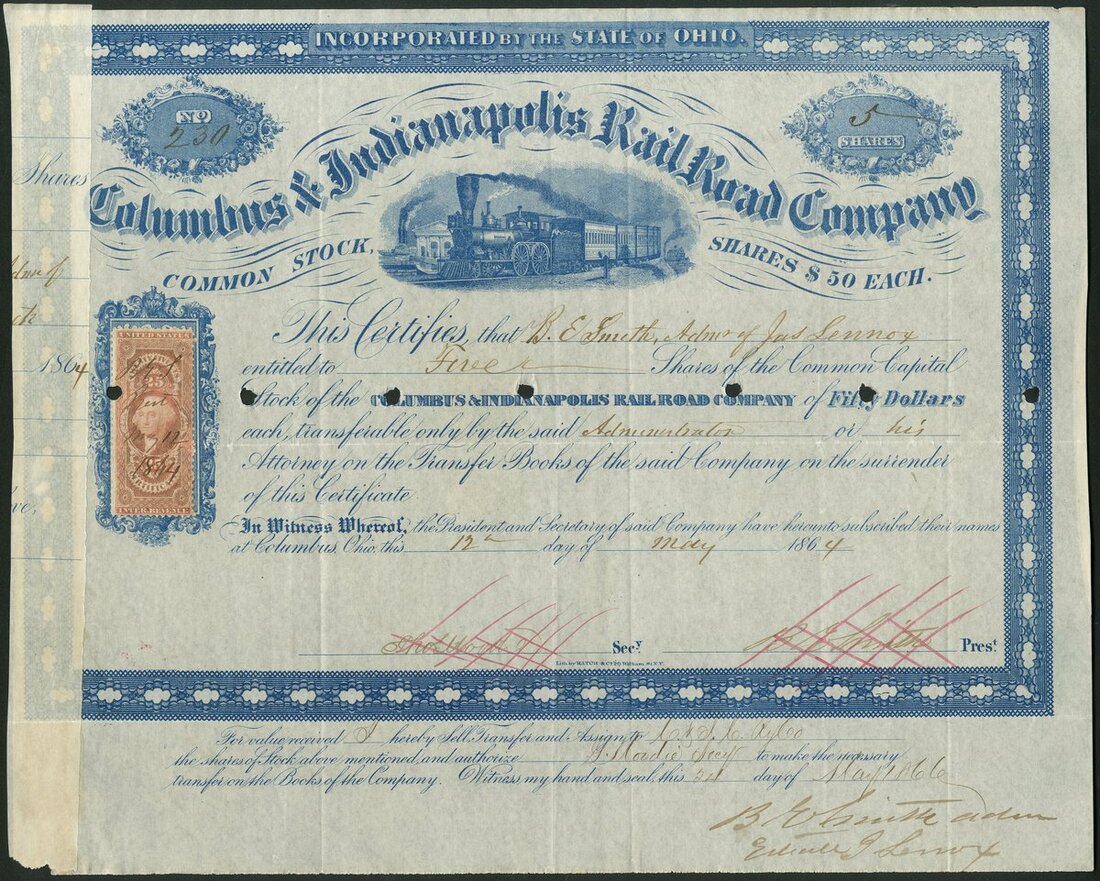 INCORPORATED BY THE STATE OF OHIO.
No 230
5 SHARES
Columbus & Indianapolis Rail Road Company
COMMON STOCK, SHARES $50 EACH.
Shares
1864
UNITED STATES
25
INTER. REVENUE
1864
This Certifies, that B. E. Smith, Admr of Jas Lennox
entitled to Five Shares of the Common Capital
Stock of the COLUMBUS & INDIANAPOLIS RAIL ROAD COMPANY of Fifty Dollars
each, transferable only by the said Administrator or his
Attorney on the Transfer Books of the said Company on the surrender
of this Certificate.
In Witness Whereof, the President and Secretary of said Company have hereunto subscribed their names
at Columbus, Ohio, this 12th day of May 1864
Secy B E Smith Prest
Lith. by HATCH & Co William St N.Y.
For value received I hereby Sell, Transfer and Assign to
the shares of Stock above mentioned, and authorize Secy to make the necessary
transfer on the Books of the Company. Witness my hand and seal, this day of May 1866
B E Smith adm
Estate J Lenox